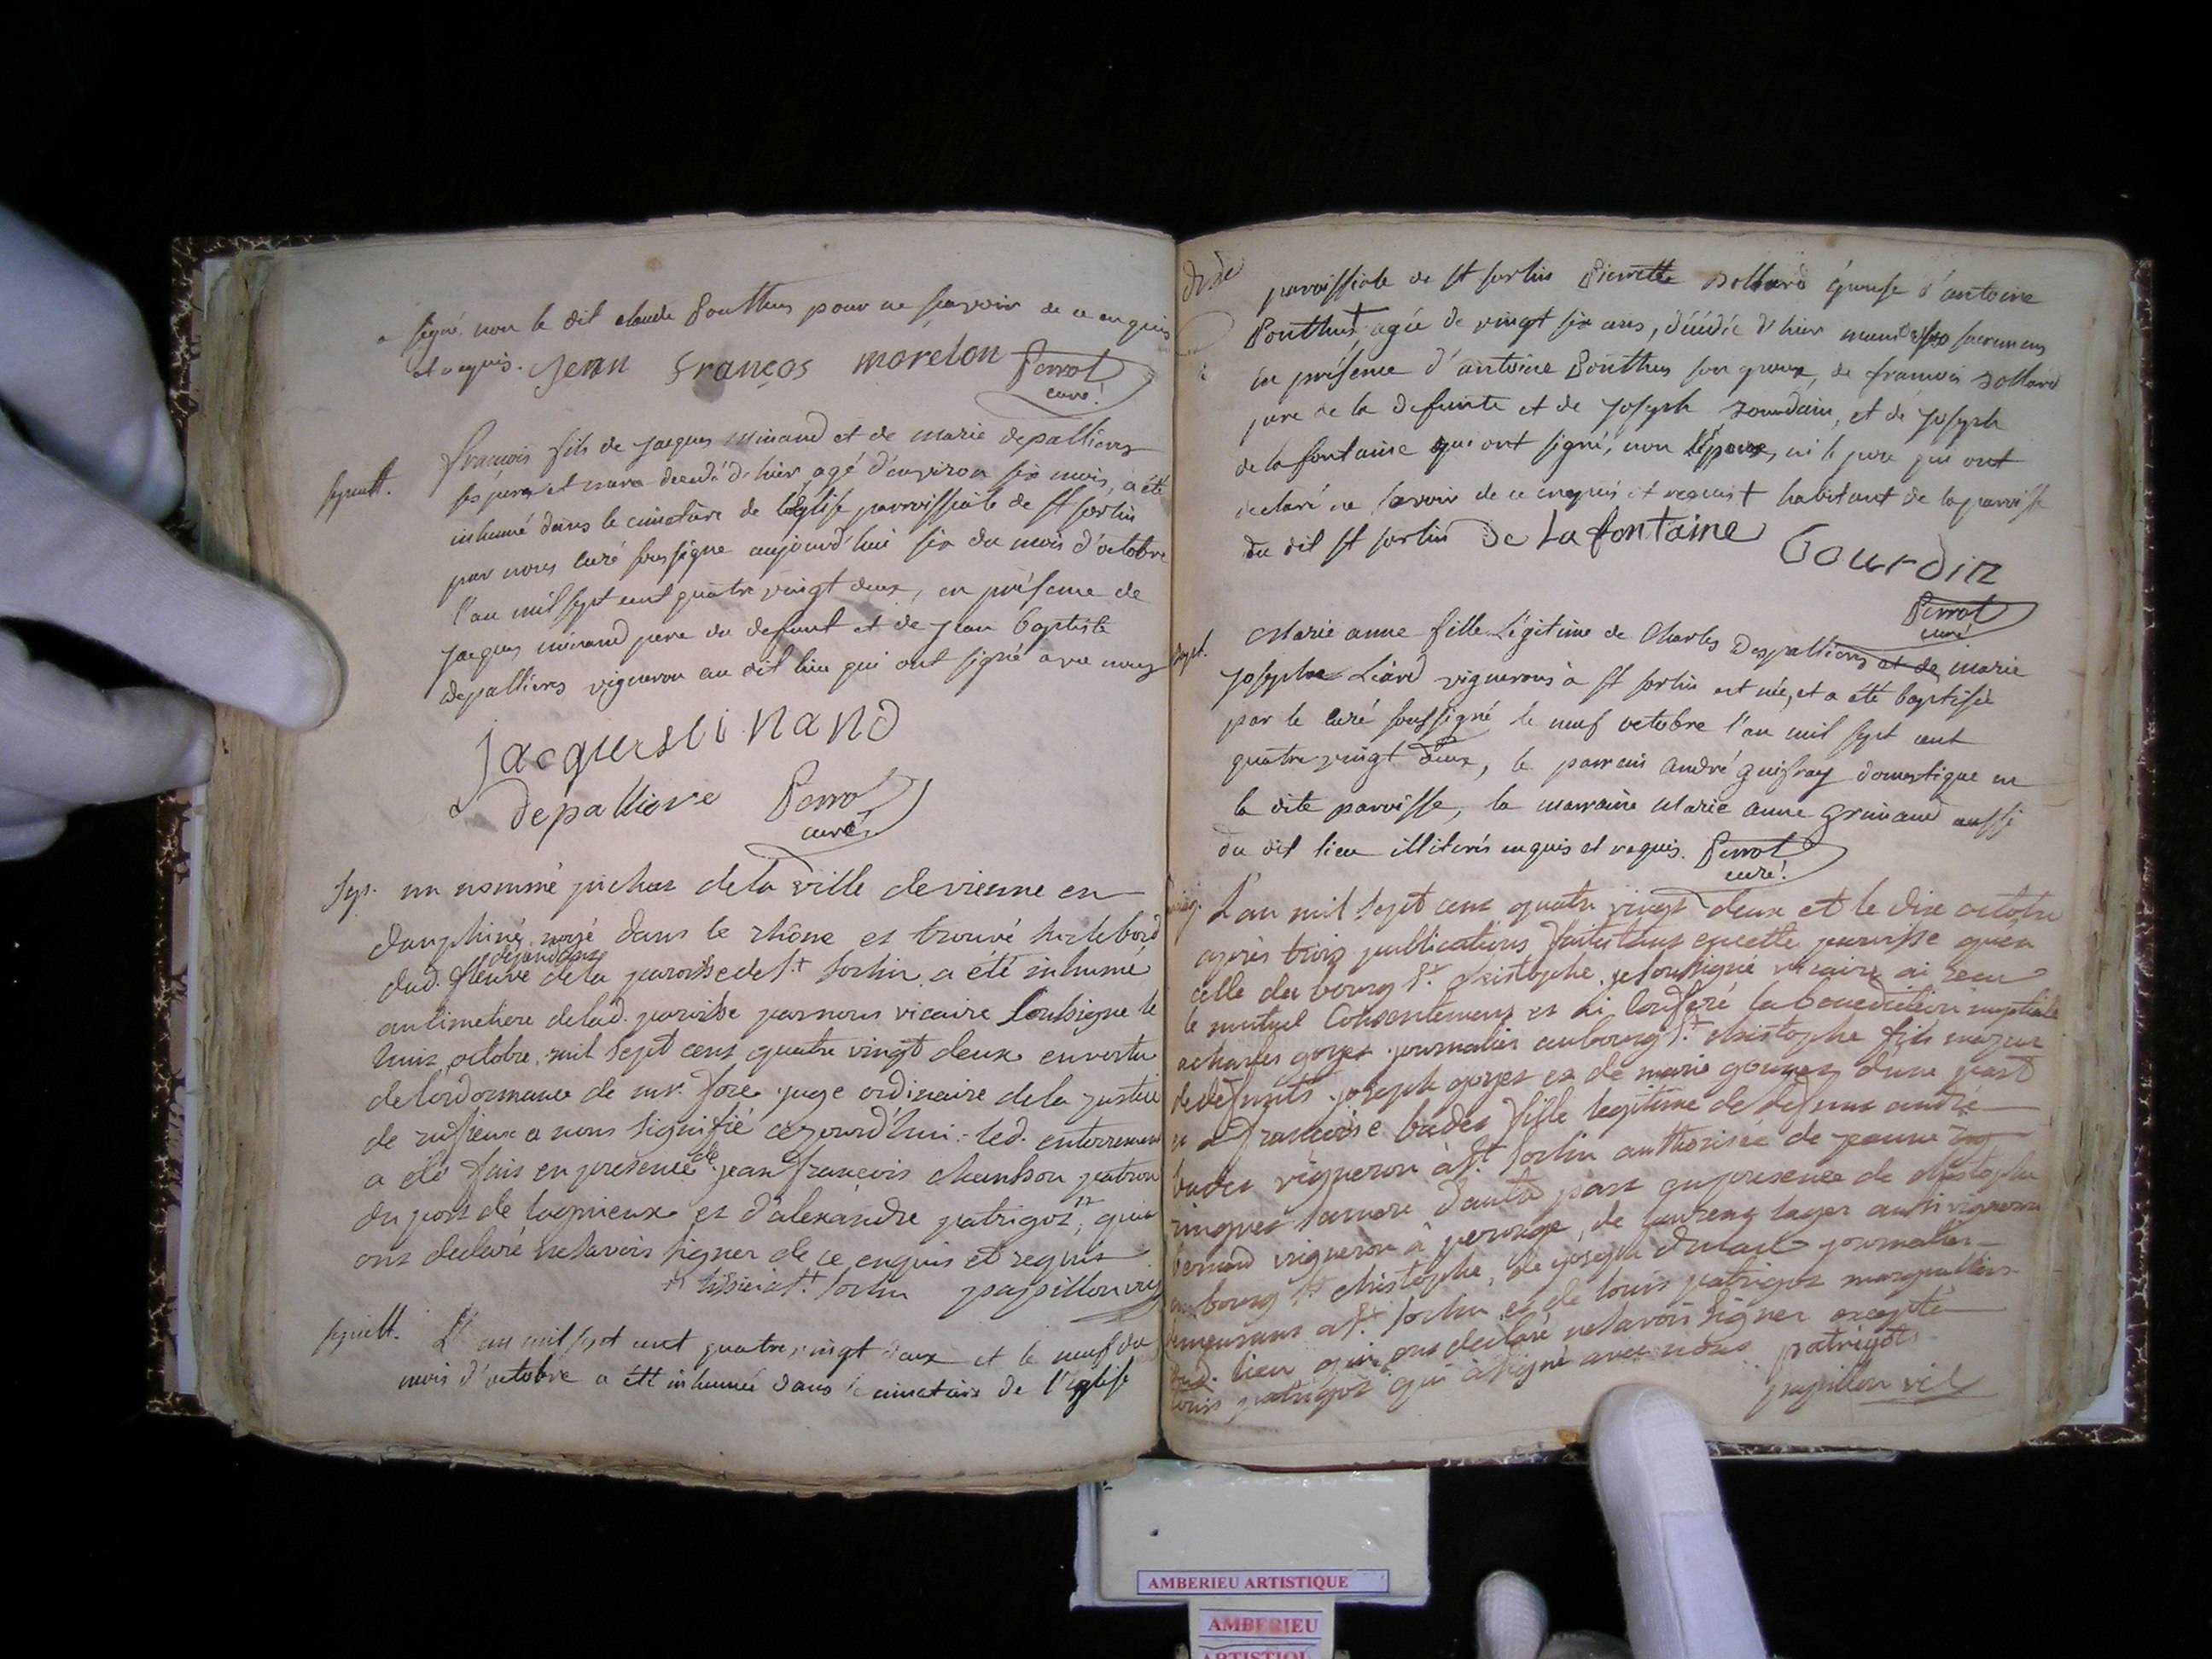 a signé non le dit claude Bouthus pour ne scavoir de ce enquis
et requis. Jean franços morelon Perrot
curé.
Sepult.
françois fils de jacques minand et de marie depallieres
ses pere et mere decedé d'hier, agé d'environ six mois, a été
inhumé dans le cimetiere de l'Eglise parroissiale de st sorlin
par nous curé soussigne aujourd'hui six du mois d'octobre
l'an mil sept cent quatre vingt deux, en présence de
jacques minand pere du defunt et de jean baptiste
depallieres vigneron au dit lieu qui ont signé avec nous
depalliere Perrot
curé.
Sep. un nommé de la ville de vienne en
dauphiné, noyé dans le rhône et trouvé sur le bord
dépendant
dud. fleuve de la paroisse de st sorlin a été inhumé
au cimetiere de lad. paroisse par nous vicaire soussigne le
huit octobre mil sept cent quatre vingt deux en vertu
de l'ordonnance de mr. juge ordinaire de la justice
de a nous signifié ce jourd'hui. led. enterrement
a été fait en presence de jean françois chanson patron
du port de lagnieux et d'alexandre patrigot +, qui
ont declaré ne savoir signer de ce enquis et requis
st sorlin papillon vic
Sepult. L'an mil sept cent quatre vingt deux et le neuf du
mois d'octobre a été inhumée dans le cimetiere de l'Eglise
parroissiale de st sorlin Pierrette Dollard épouse d'antoine
Bouthus + agée de vingt six ans, décédée d'hier munie des sacremens
en présence d'antoine Bouthus son epoux, de francois Dollard
pere de la defunte et de joseph, et de joseph
de la fontaine qui ont signé, non l'époux, ni le pere qui ont
declaré ne scavoir de ce enquis et requis + habitant de la paroisse
du dit st sorlin De La fontaine Gourdin
Perrot
curé
Bapt.
Marie anne fille Légitime de Charles Depallieres et de marie
josephe Liard vignerons à st sorlin est née, et a été baptisée
par le curé soussigné le neuf octobre l'an mil sept cent
quatre vingt deux, le parrain andré guifray domestique en
la dite paroisse, la marraine Marie anne grimand aussi
du dit lieu illiterés enquis et requis. Perrot
curé.
L'an mil sept cent quatre vingt deux et le dix octobre
après trois publications faites tant en cette paroisse qu'en
celle du bourg st. christophe, je soussigné vicaire ai recu
le mutuel consentement et ai conferé la benediction nuptiale
a charles goyet journalier au bourg st. christophe fils majeur
de defunts joseph goyet et de marie d'une part
et a francoise fille legitime de defunt andré
vigneron à st. sorlin authorisée de jeanne
sa mere d'autre part en presence de christophe
bernard vigneron à perouge, de laurent lager aussi vigneron
au bourg st christophe, de joseph journalier
demeurant a st. sorlin et de louis patrigot marguillier
dud. lieu qui ont declaré ne savoir signer excepté
louis patrigot qui a signé avec nous patrigot
papillon vic
AMBERIEU ARTISTIQUE
AMBERIEU
ARTISTIQUE